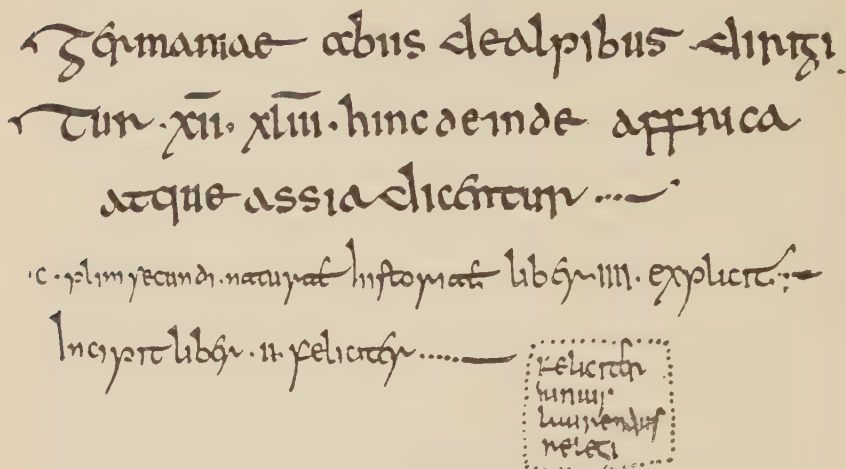 Germaniae abiis dealpibus dirigi
tur · xii · xliii · hinc deinde affrica
atque assia dicentur
· c · plini secundi · natural historiae · liber · iiii · explicit
Incipit liber · u · feliciter
feliciter
iunius
laurentius
relegi